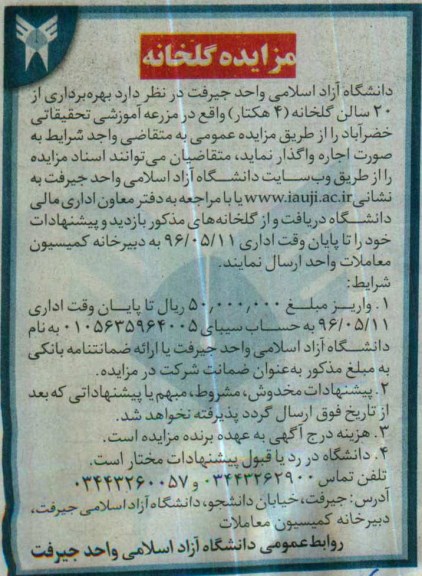 مزایده گلخانه
دانشگاه آزاد اسلامی واحد جیرفت در نظر دارد بهره‌برداری از
۲۰ سالن گلخانه (۴ هکتار) واقع در مزرعه آموزشی تحقیقاتی
خضرآباد را از طریق مزایده عمومی به متقاضی واجد شرایط به
صورت اجاره واگذار نماید، متقاضیان می‌توانند اسناد مزایده
را از طریق وب‌سایت دانشگاه آزاد اسلامی واحد جیرفت به
نشانی www.iauji.ac.ir یا با مراجعه به دفتر معاون اداری مالی
دانشگاه دریافت و از گلخانه‌های مذکور بازدید و پیشنهادات
خود را تا پایان وقت اداری ۹۶/۰۵/۱۱ به دبیرخانه کمیسیون
معاملات واحد ارسال نمایند.
شرایط:
۱. واریز مبلغ ۵۰,۰۰۰,۰۰۰ ریال تا پایان وقت اداری
۹۶/۰۵/۱۱ به حساب سیبای ۰۱۰۵۶۳۵۹۶۴۰۰۵ به نام
دانشگاه آزاد اسلامی واحد جیرفت یا ارائه ضمانتنامه بانکی
به مبلغ مذکور به‌عنوان ضمانت شرکت در مزایده.
۲. پیشنهادات مخدوش، مشروط، مبهم یا پیشنهاداتی که بعد
از تاریخ فوق ارسال گردد پذیرفته نخواهد شد.
۳. هزینه درج آگهی به عهده برنده مزایده است.
۴. دانشگاه در رد یا قبول پیشنهادات مختار است.
تلفن تماس ۰۳۴۴۳۲۶۲۹۰۰ و ۰۳۴۴۳۲۶۰۰۵۷
آدرس: جیرفت، خیابان دانشجو، دانشگاه آزاد اسلامی جیرفت،
دبیرخانه کمیسیون معاملات
روابط عمومی دانشگاه آزاد اسلامی واحد جیرفت